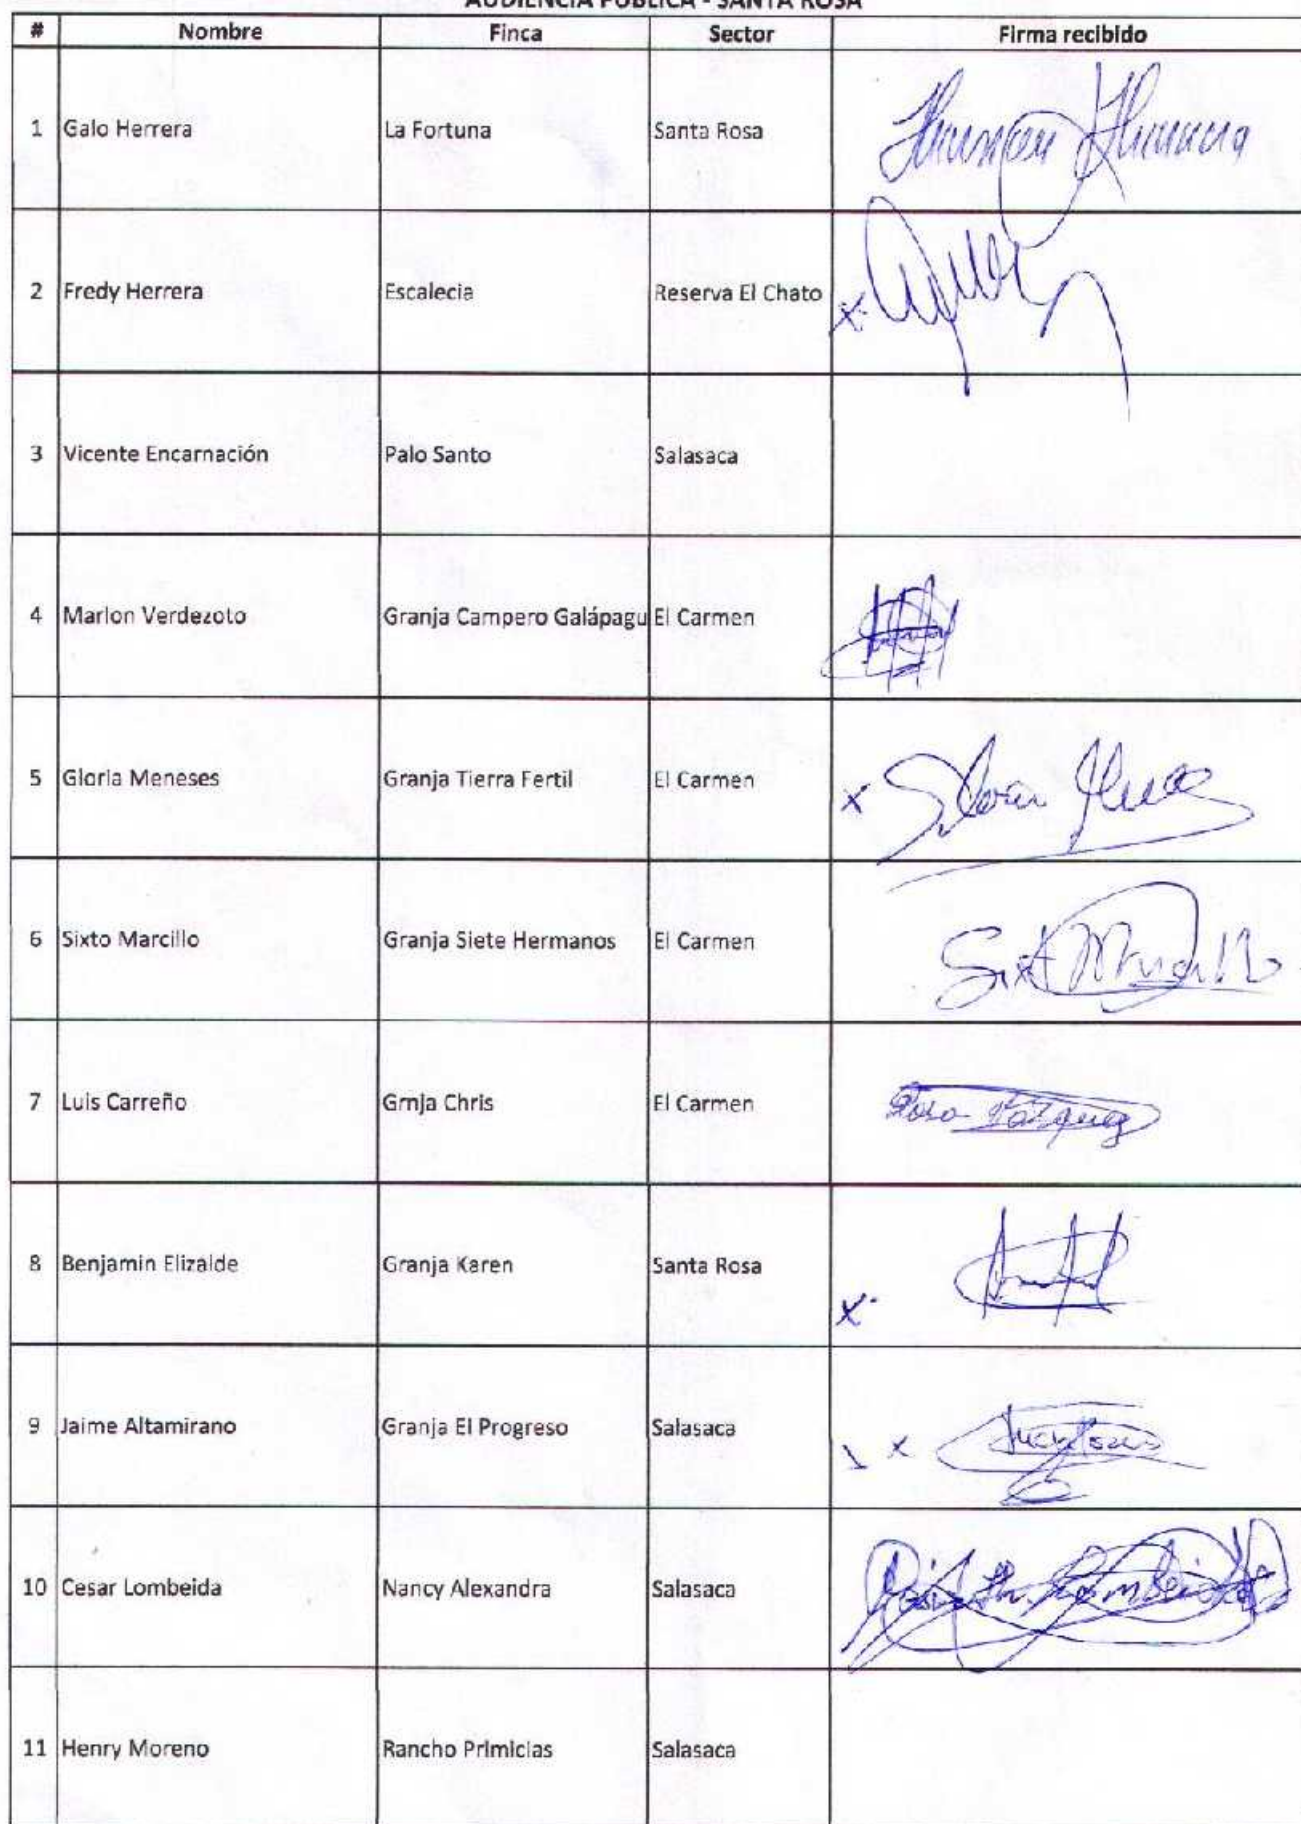 AUDIENCIA PÚBLICA - SANTA ROSA
# Nombre Finca Sector Firma recibido
1 Galo Herrera La Fortuna Santa Rosa
2 Fredy Herrera Escalecia Reserva El Chato x
3 Vicente Encarnación Palo Santo Salasaca
4 Marlon Verdezoto Granja Campero Galápagu El Carmen
5 Gloria Meneses Granja Tierra Fertil El Carmen x
6 Sixto Marcillo Granja Siete Hermanos El Carmen Sixto Marcillo
7 Luis Carreño Grnja Chris El Carmen Rosa Vazquez
8 Benjamin Elizalde Granja Karen Santa Rosa x
9 Jaime Altamirano Granja El Progreso Salasaca x
10 Cesar Lombeida Nancy Alexandra Salasaca
11 Henry Moreno Rancho Primicias Salasaca